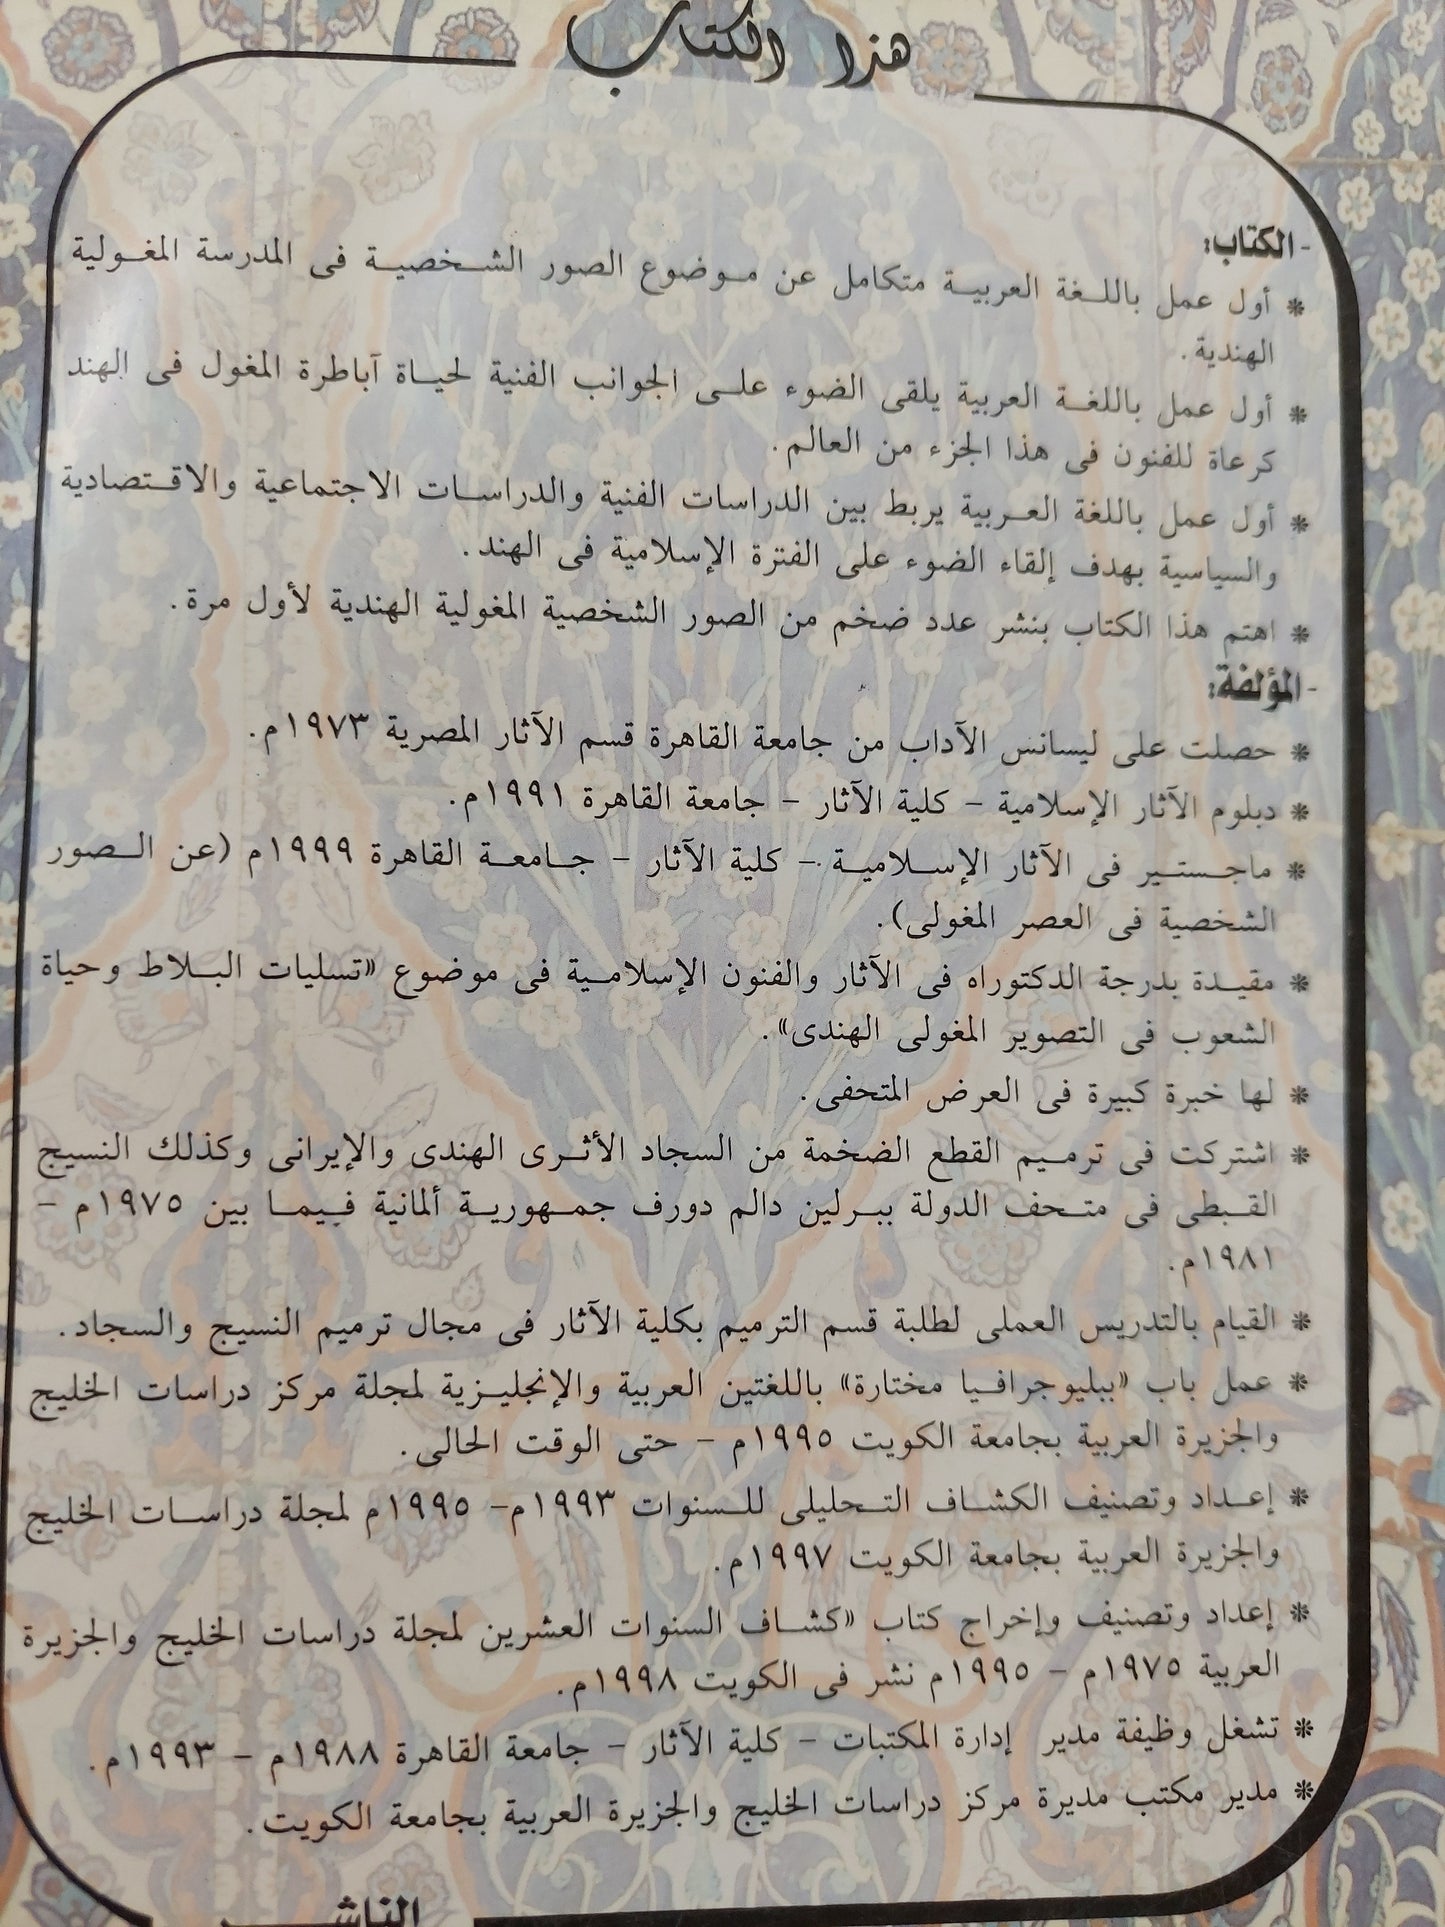 هذا الكتاب
- الكتاب:
* أول عمل باللغة العربية متكامل عن موضوع الصور الشخصية فى المدرسة المغولية
الهندية.
* أول عمل باللغة العربية يلقى الضوء على الجوانب الفنية لحياة آباطرة المغول فى الهند
كرعاة للفنون فى هذا الجزء من العالم.
* أول عمل باللغة العربية يربط بين الدراسات الفنية والدراسات الاجتماعية والاقتصادية
والسياسية بهدف إلقاء الضوء على الفترة الإسلامية فى الهند.
* اهتم هذا الكتاب بنشر عدد ضخم من الصور الشخصية المغولية الهندية لأول مرة.
- المؤلفة:
* حصلت على ليسانس الآداب من جامعة القاهرة قسم الآثار المصرية ١٩٧٣م.
* دبلوم الآثار الإسلامية - كلية الآثار - جامعة القاهرة ١٩٩١م.
* ماجستير فى الآثار الإسلامية - كلية الآثار - جامعة القاهرة ١٩٩٩م (عن الصور
الشخصية فى العصر المغولى).
* مقيدة بدرجة الدكتوراه فى الآثار والفنون الإسلامية فى موضوع «تسليات البلاط وحياة
الشعوب فى التصوير المغولى الهندى».
* لها خبرة كبيرة فى العرض المتحفى.
* اشتركت فى ترميم القطع الضخمة من السجاد الأثرى الهندى والإيرانى وكذلك النسيج
القبطى فى متحف الدولة ببرلين دالم دورف جمهورية ألمانية فيما بين ١٩٧٥م -
١٩٨١م.
* القيام بالتدريس العملى لطلبة قسم الترميم بكلية الآثار فى مجال ترميم النسيج والسجاد.
* عمل باب «ببليوجرافيا مختارة» باللغتين العربية والإنجليزية لمجلة مركز دراسات الخليج
والجزيرة العربية بجامعة الكويت ١٩٩٥م - حتى الوقت الحالى.
* إعداد وتصنيف الكشاف التحليلى للسنوات ١٩٩٣م- ١٩٩٥م لمجلة دراسات الخليج
والجزيرة العربية بجامعة الكويت ١٩٩٧م.
* إعداد وتصنيف وإخراج كتاب «كشاف السنوات العشرين لمجلة دراسات الخليج والجزيرة
العربية ١٩٧٥م - ١٩٩٥م نشر فى الكويت ١٩٩٨م.
* تشغل وظيفة مدير إدارة المكتبات - كلية الآثار - جامعة القاهرة ١٩٨٨م - ١٩٩٣م.
* مدير مكتب مديرة مركز دراسات الخليج والجزيرة العربية بجامعة الكويت.
الناشر